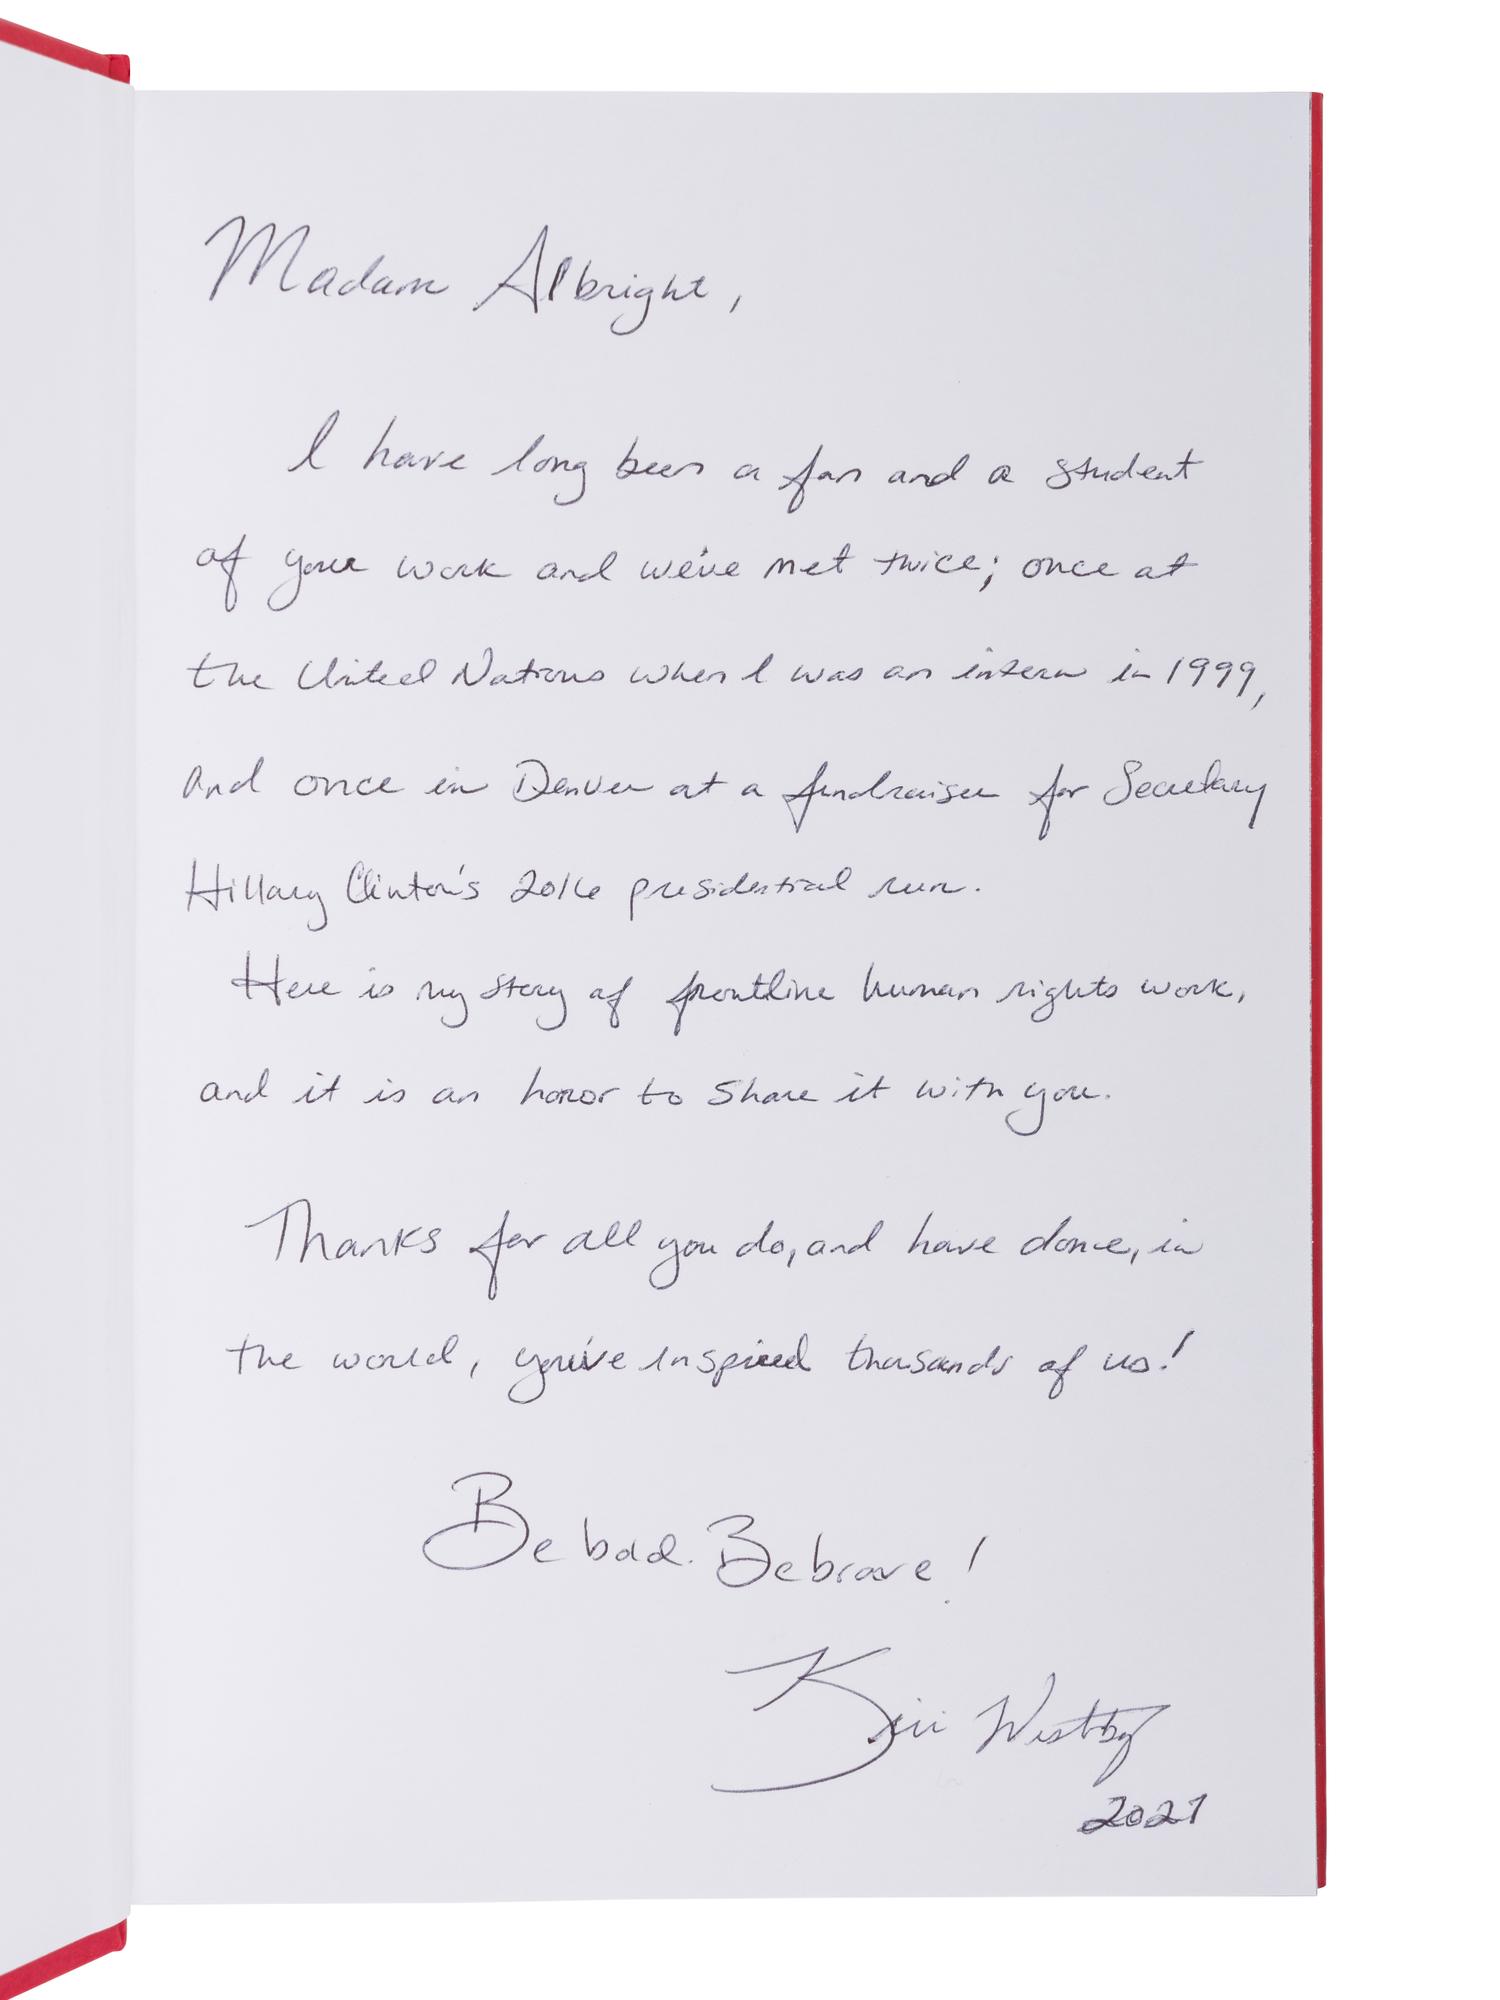 Madam Albright,
I have long been a fan and a student
of your work and we've met twice; once at
the United Nations when I was an intern in 1999,
and once in Denver at a fundraiser for Secretary
Hillary Clinton's 2016 presidential run.
Here is my story of frontline human rights work,
and it is an honor to share it with you.
Thanks for all you do, and have done, in
the world, you've inspired thousands of us!
Be bold. Be brave!
Kiri Westby
2021